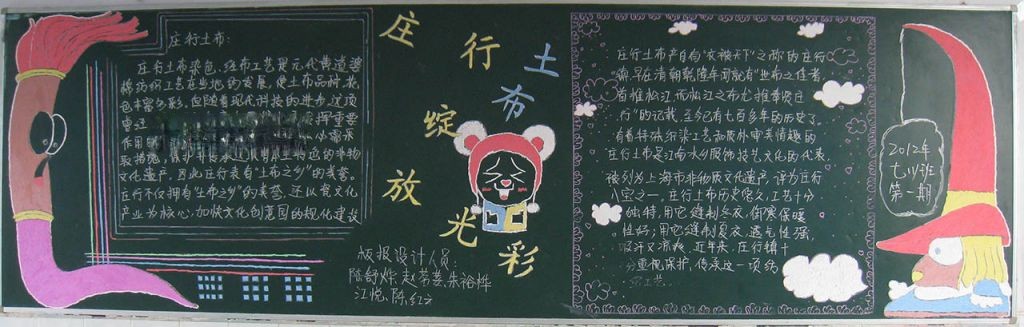 庄行土布:
庄行土布染色、经布工艺是元代黄道婆
棉纺织工艺在当地的发展,使土布品种、花
色丰富多彩,但随着现代科技的进步,这项
挥重要
作用
取措施,保护并传承
文化遗产,因此庄行素有"土布之乡"的美誉。
庄行不仅拥有"土布之乡"的美誉,还以农文化
产业为核心,加快文化创意园的规化建设
庄行土布
绽放光彩
板报设计人员:
陈舒烨、赵芳菱、朱裕烨
江悦、陈红
庄行土布产自有"衣被天下"之称的庄行
镇,早在清朝乾隆年间就有"土布之佳者,
首推松江,而松江之布尤推奉贤庄
行"的记载,至今已有七百多年的历史了。
有着特殊织染工艺和质朴审美情趣的
庄行土布是江南水乡服饰技艺文化的代表,
被列为上海市非物质文化遗产,评为庄行
八宝之一,庄行土布历史悠久,工艺十分
独特,用它缝制冬衣,御寒保暖
性好;用它缝制夏衣,透气性强,
吸汗又凉爽,近年来,庄行镇十
分重视保护、传承这一项纺
织工艺。
2012年
七(1)班
第一期